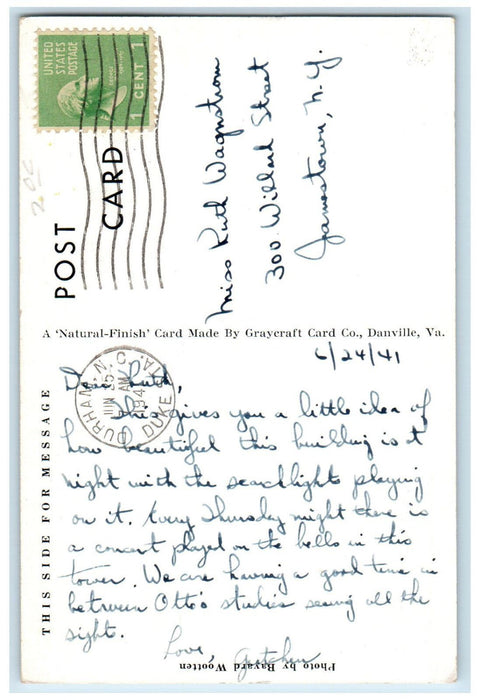 UNITED
STATES
POSTAGE
1 CENT 1
2.00
POST
CARD
Miss Ruth Wagnstrom
300 Willard Street
Jamestown, N.Y.
A 'Natural-Finish' Card Made By Graycraft Card Co., Danville, Va.
THIS SIDE FOR MESSAGE
DURHAM, N.C.
JUN 25
AM
194
DUKE
6/24/41
Dear Ruth,
This gives you a little idea of
how beautiful this building is at
night with the searchlights playing
on it. Every Thursday night there is
a concert played on the bells in this
tower. We are having a good time in
between Otto's studies seeing all the
sights.
Love, Gretchen
Photo by Bayard Wootten